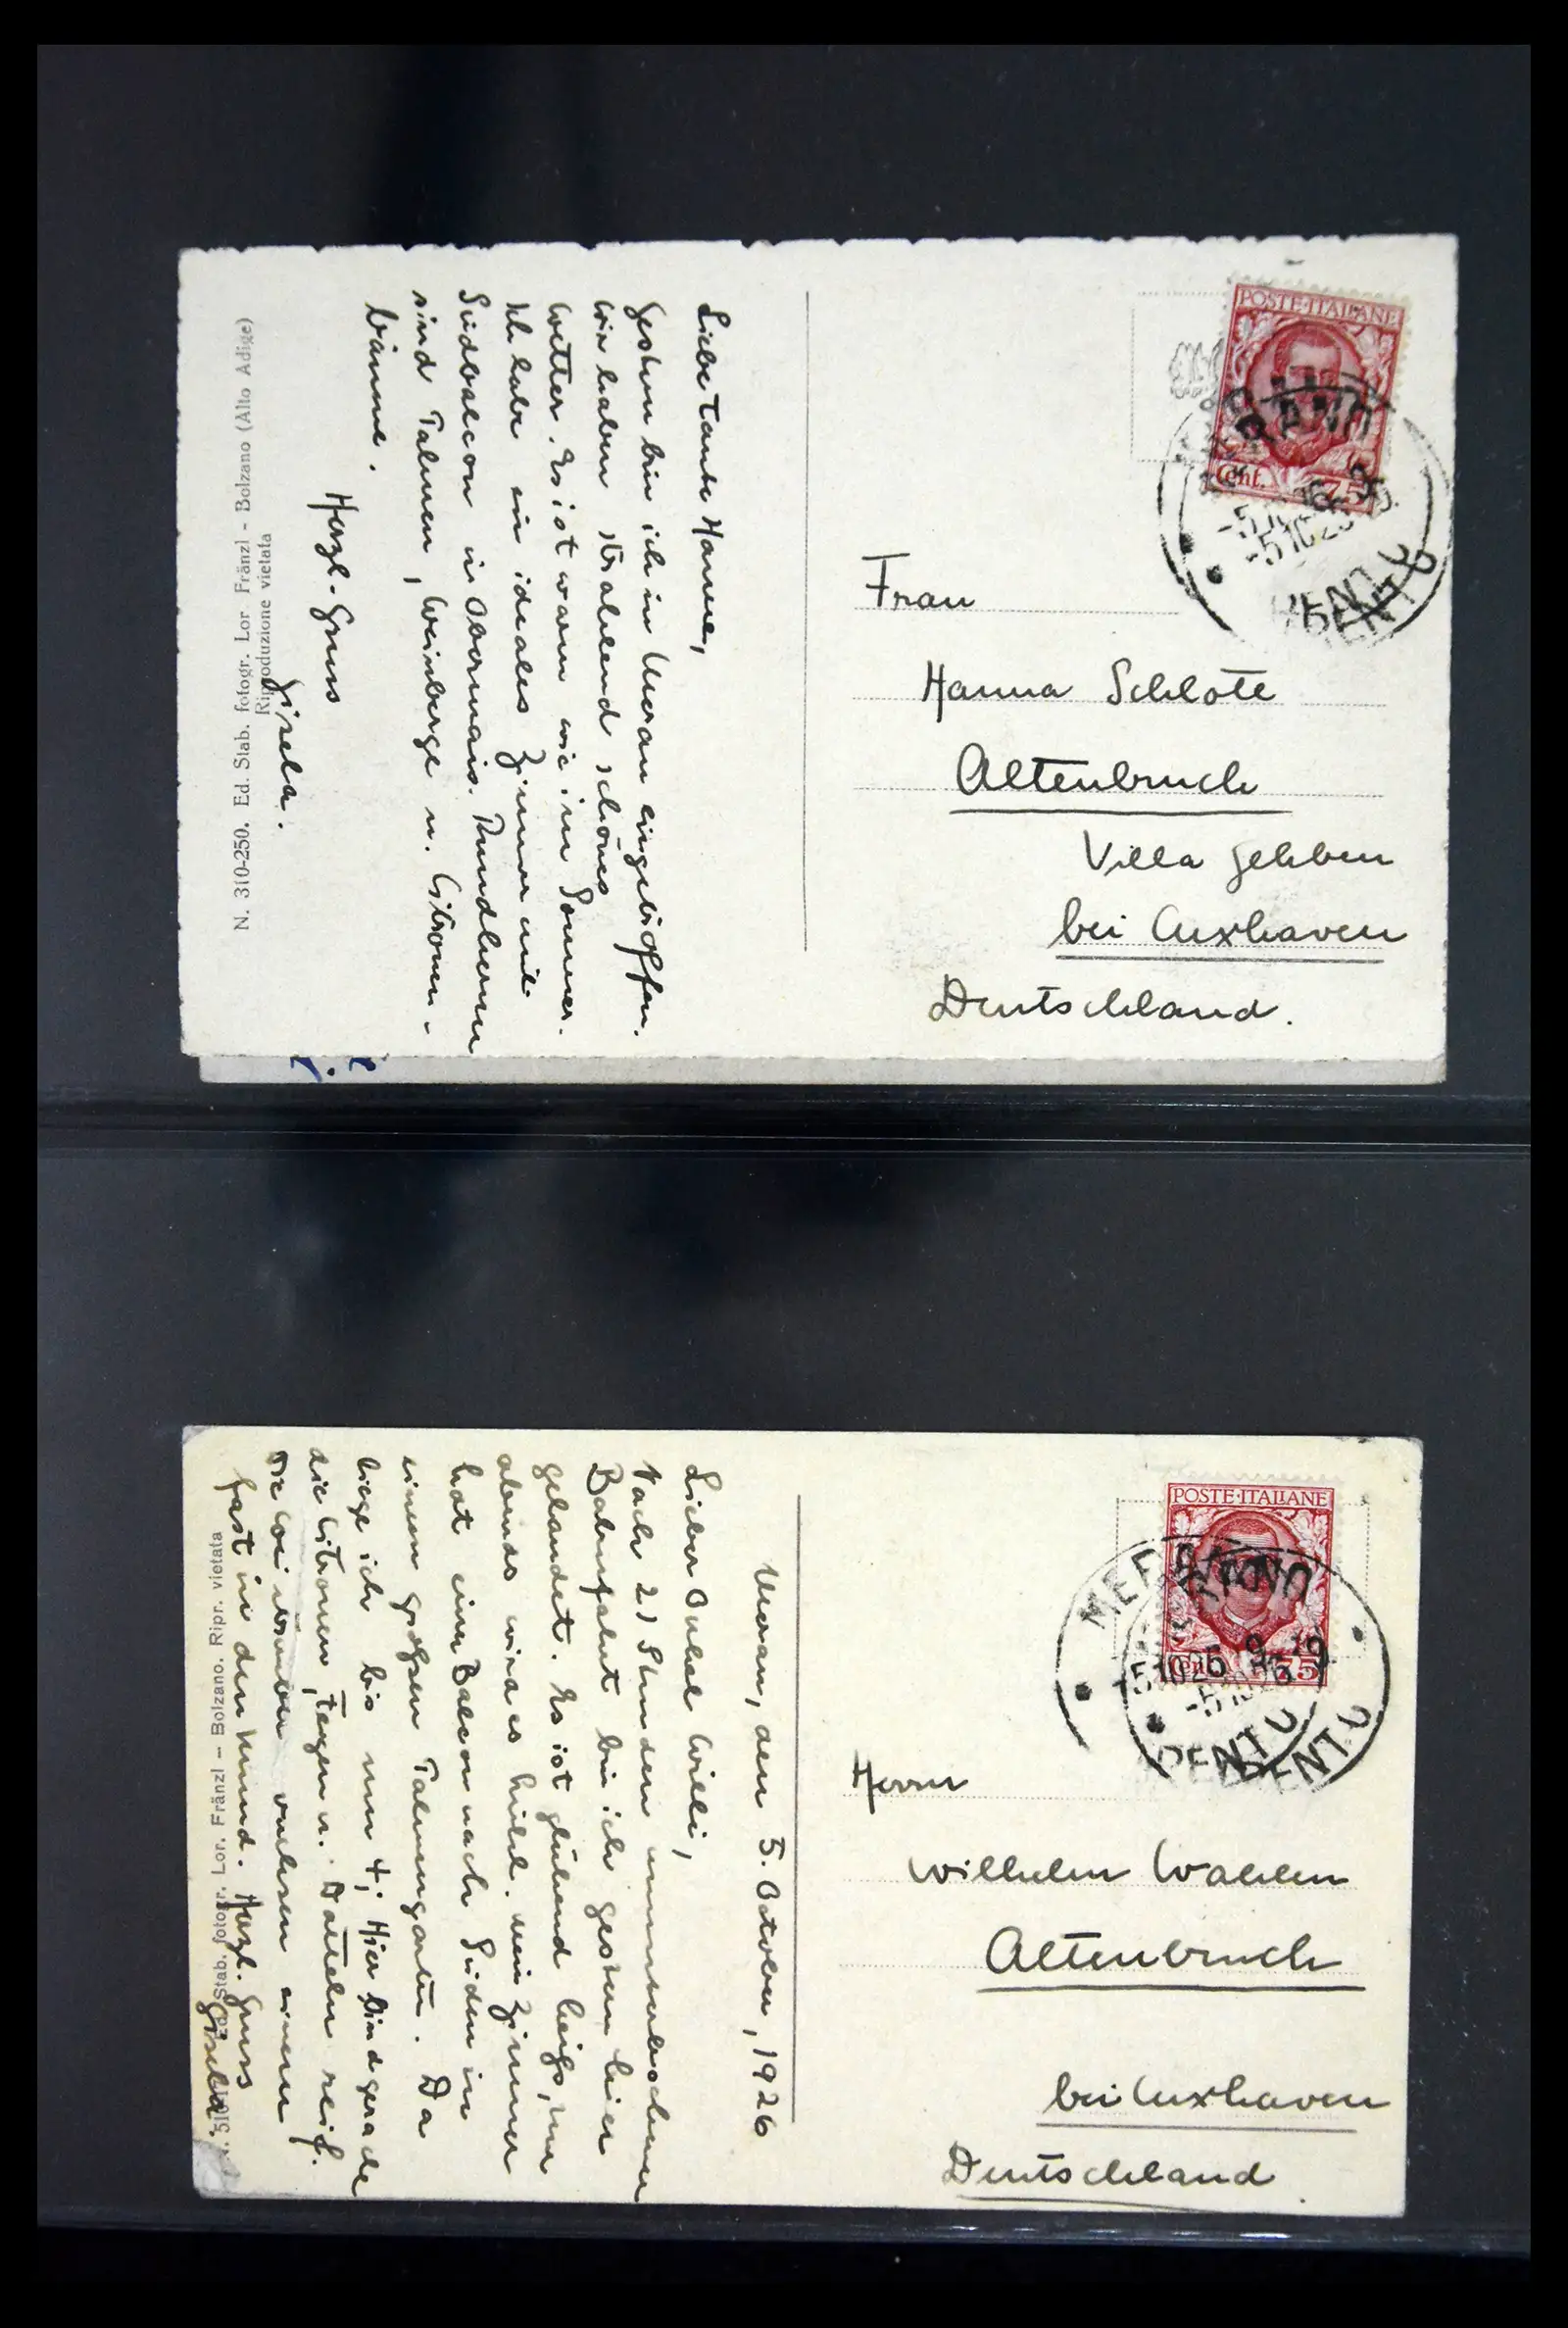 Liebe Tante Hanna,
Gestern bin ich in Meran eingetroffen.
Wir haben strahlend schönes
Wetter. Es ist warm wie im Sommer.
Ich habe ein ideales Zimmer mit
Südbalcon in Obermais. Rundherum
sind Palmen, Weinberge u. Citronen-
bäume.
Herzl. Gruss
Gisela.
N. 310-250. Ed. Stab. fotogr. Lor. Fränzl - Bolzano (Alto Adige)
Riproduzione vietata
POSTE·ITALIANE
Cent. 75
Frau
Hanna Schlote
Altenbruch
Villa Gehben
bei Cuxhaven
Deutschland.
Meran, den 5. October, 1926
Lieber Onkel Willi,
Nach 21 Stunden ununterbrochener
Bahnfahrt bin ich gestern hier
gelandet. Es ist glühend heiß, nur
abends wird es kühl. Mein Zimmer
hat einen Balcon nach Süden in
einen großen Palmengarten. Da
liege ich bis um 4. Hier sind gerade
die Citronen, Feigen u. Datteln reif.
Die Weintrauben wachsen einem
fast in den Mund. Herzl. Gruss
Gisela.
Ed. Stab. fotogr. Lor. Fränzl - Bolzano. Ripr. vietata
POSTE·ITALIANE
Cent. 75
MERANO
Herrn
Wilhelm Wahlen
Altenbruch
bei Cuxhaven
Deutschland